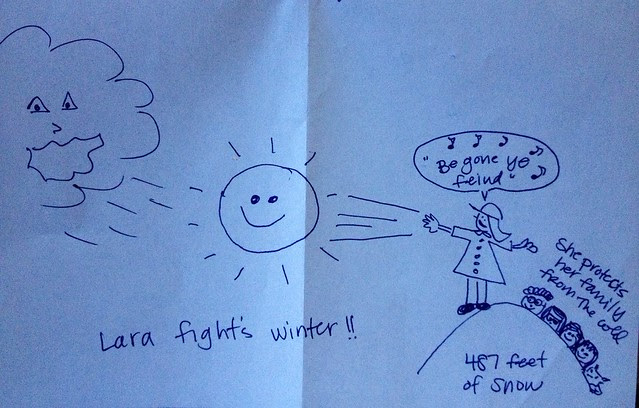 "Be gone ye
feind"
She protects
her family
from The cold
Lara fight's winter!!
487 feet
of snow